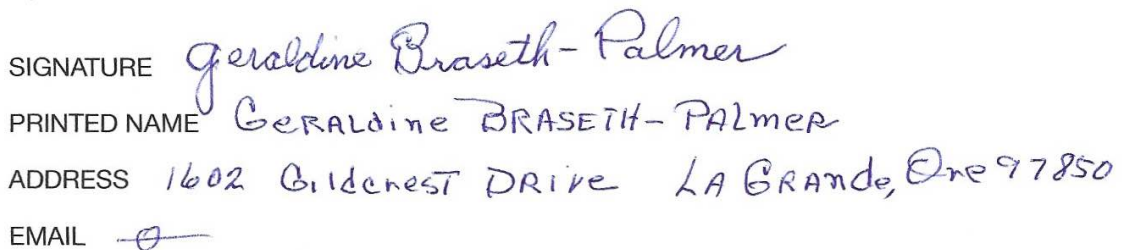 SIGNATURE Geraldine Braseth-Palmer
PRINTED NAME GeRALdine BRASETH-PALmeR
ADDRESS 1602 GildcresT DRive LA GRAnde, Ore 97850
EMAIL